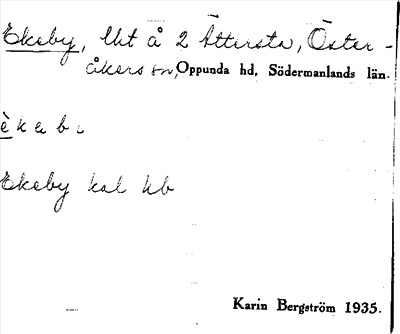 Ekeby, lht å 2 Ättersta, Öster-
åkers sn, Oppunda hd, Södermanlands län.
èkabi
Ekeby kal hb
Karin Bergström 1935.